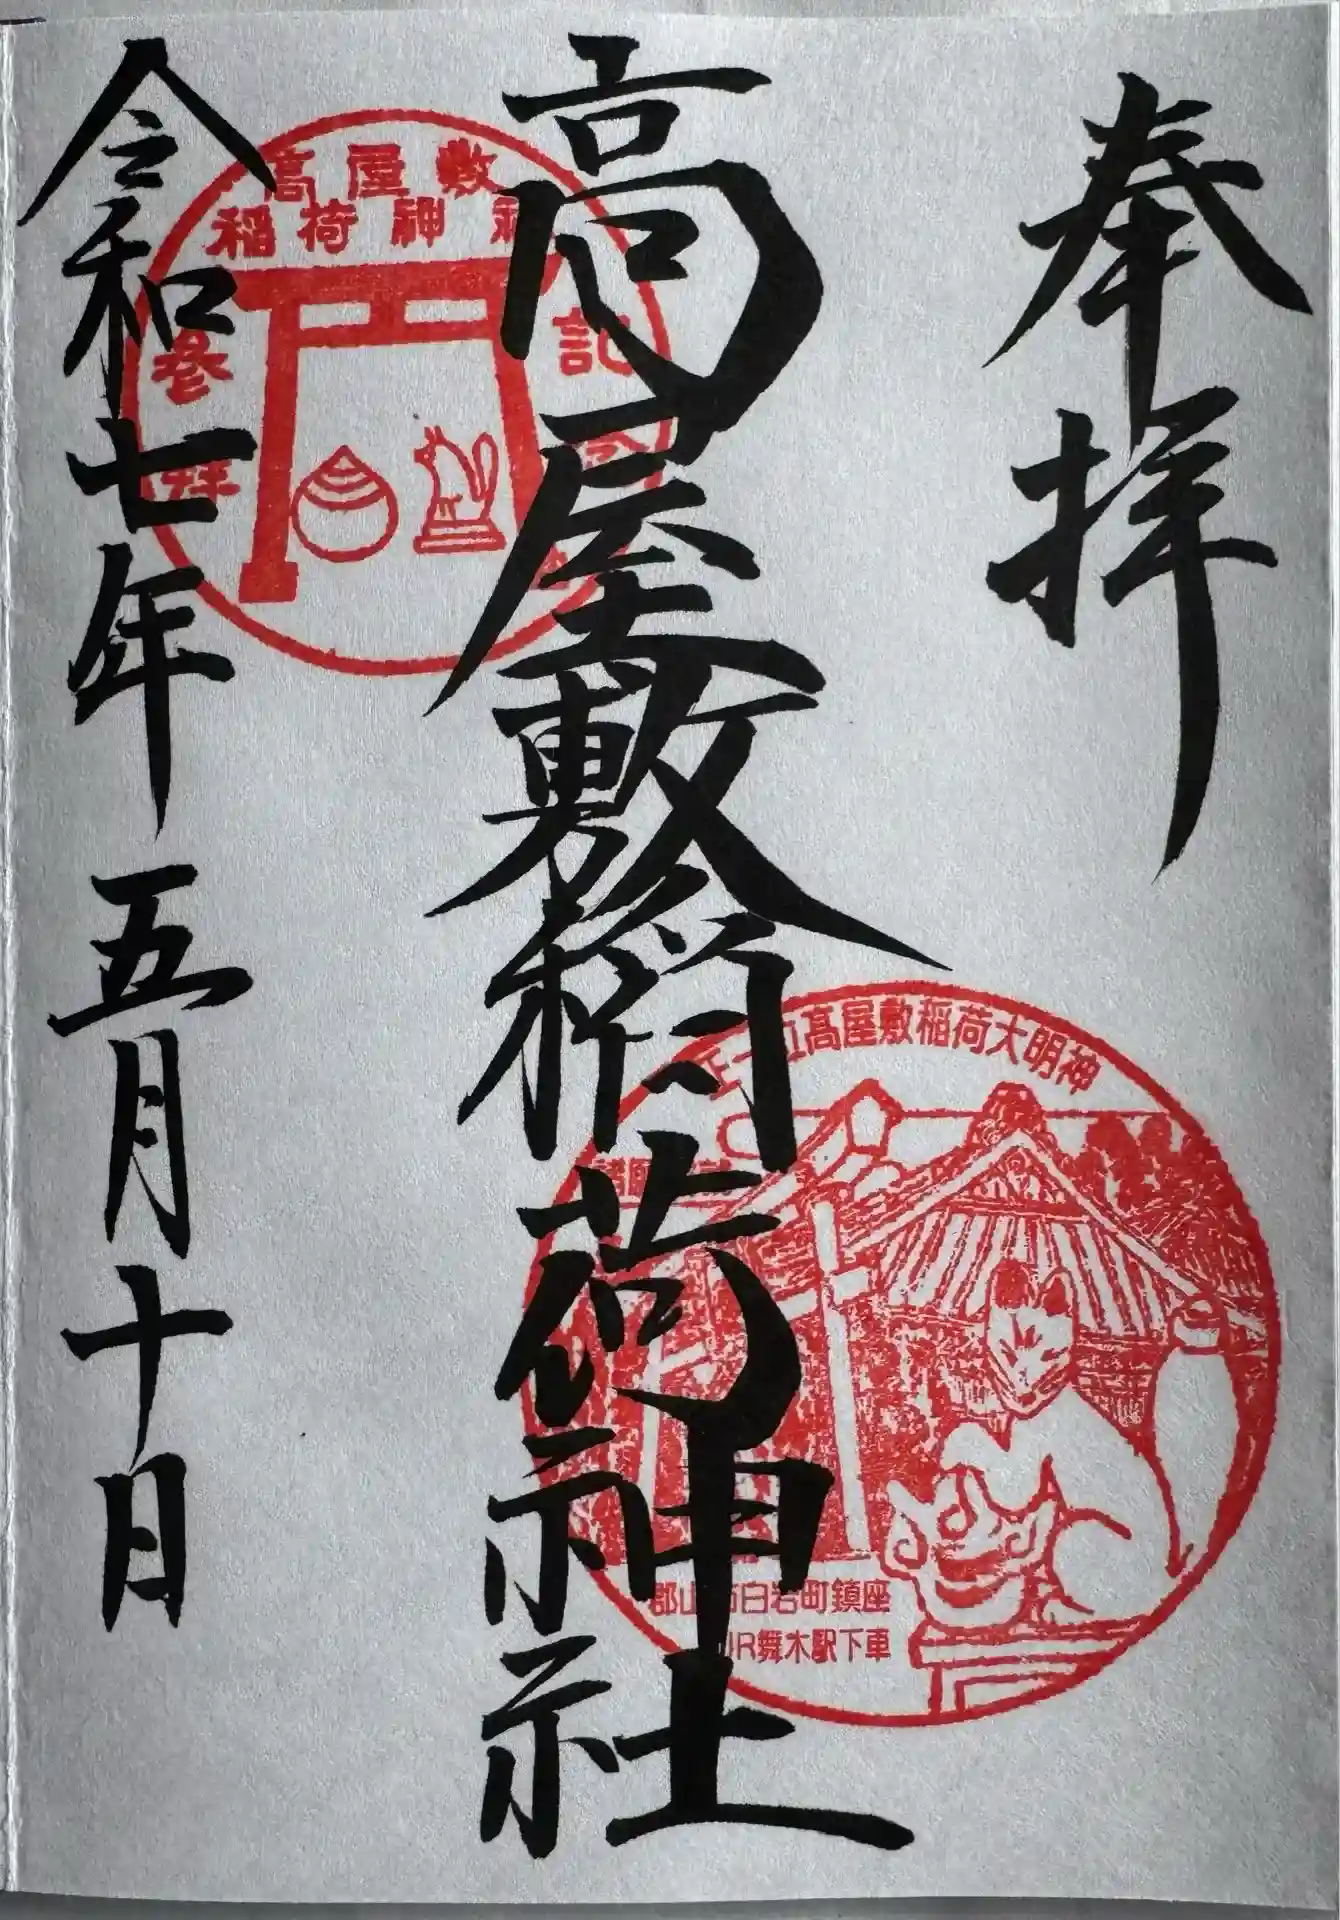 奉拝
高屋敷稲荷神社
令和七年五月十日
髙屋敷
稲荷神社
参拝
記念
正一位髙屋敷稲荷大明神
郡山市白岩町鎮座
JR舞木駅下車